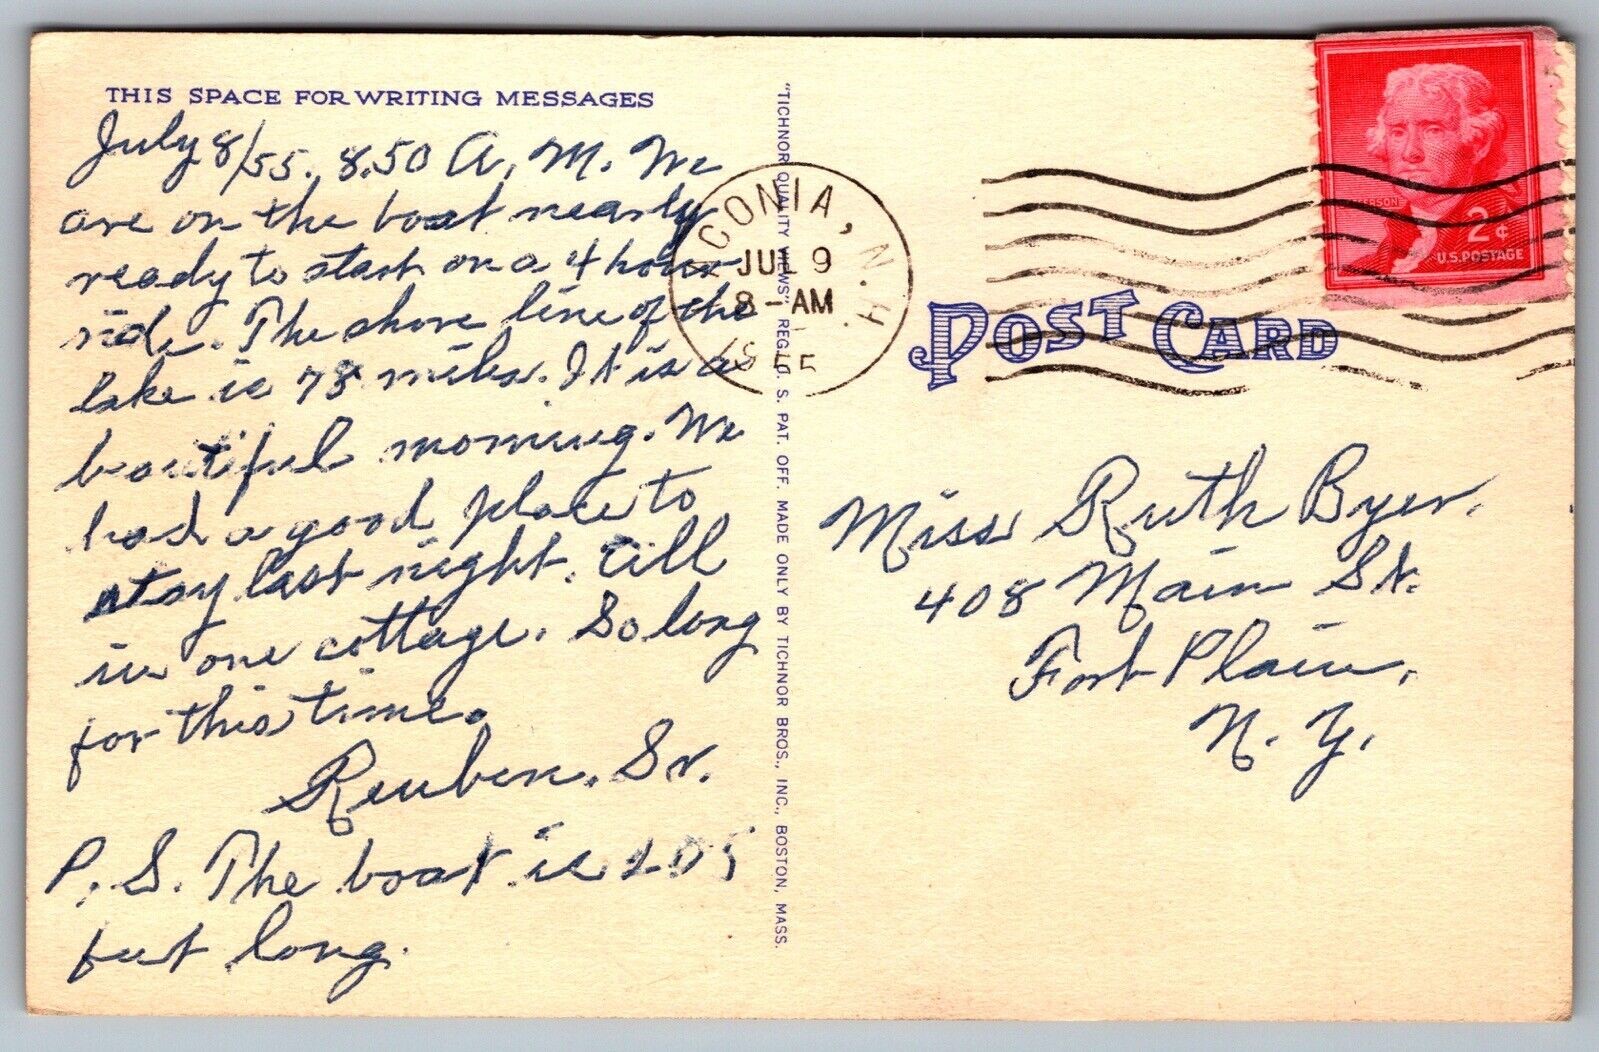 THIS SPACE FOR WRITING MESSAGES
July 8/55. 8.50 A.M. We
are on the boat nearly
ready to start on a 4 hour
ride. The shore line of the
lake is 78 miles. It is a
beautiful morning. We
had a good place to
stay last night. All
in one cottage. So long
for this time.
Reuben, Sr.
P.S. The boat is 205
feet long.
"TICHNOR QUALITY VIEWS" REG. U. S. PAT. OFF. MADE ONLY BY TICHNOR BROS., INC., BOSTON, MASS.
CONIA, N.H.
JUL 9
8-AM
POST CARD
JEFFERSON
2¢
U.S. POSTAGE
Miss Ruth Byer.
408 Main St.
Fort Plain,
N. Y.